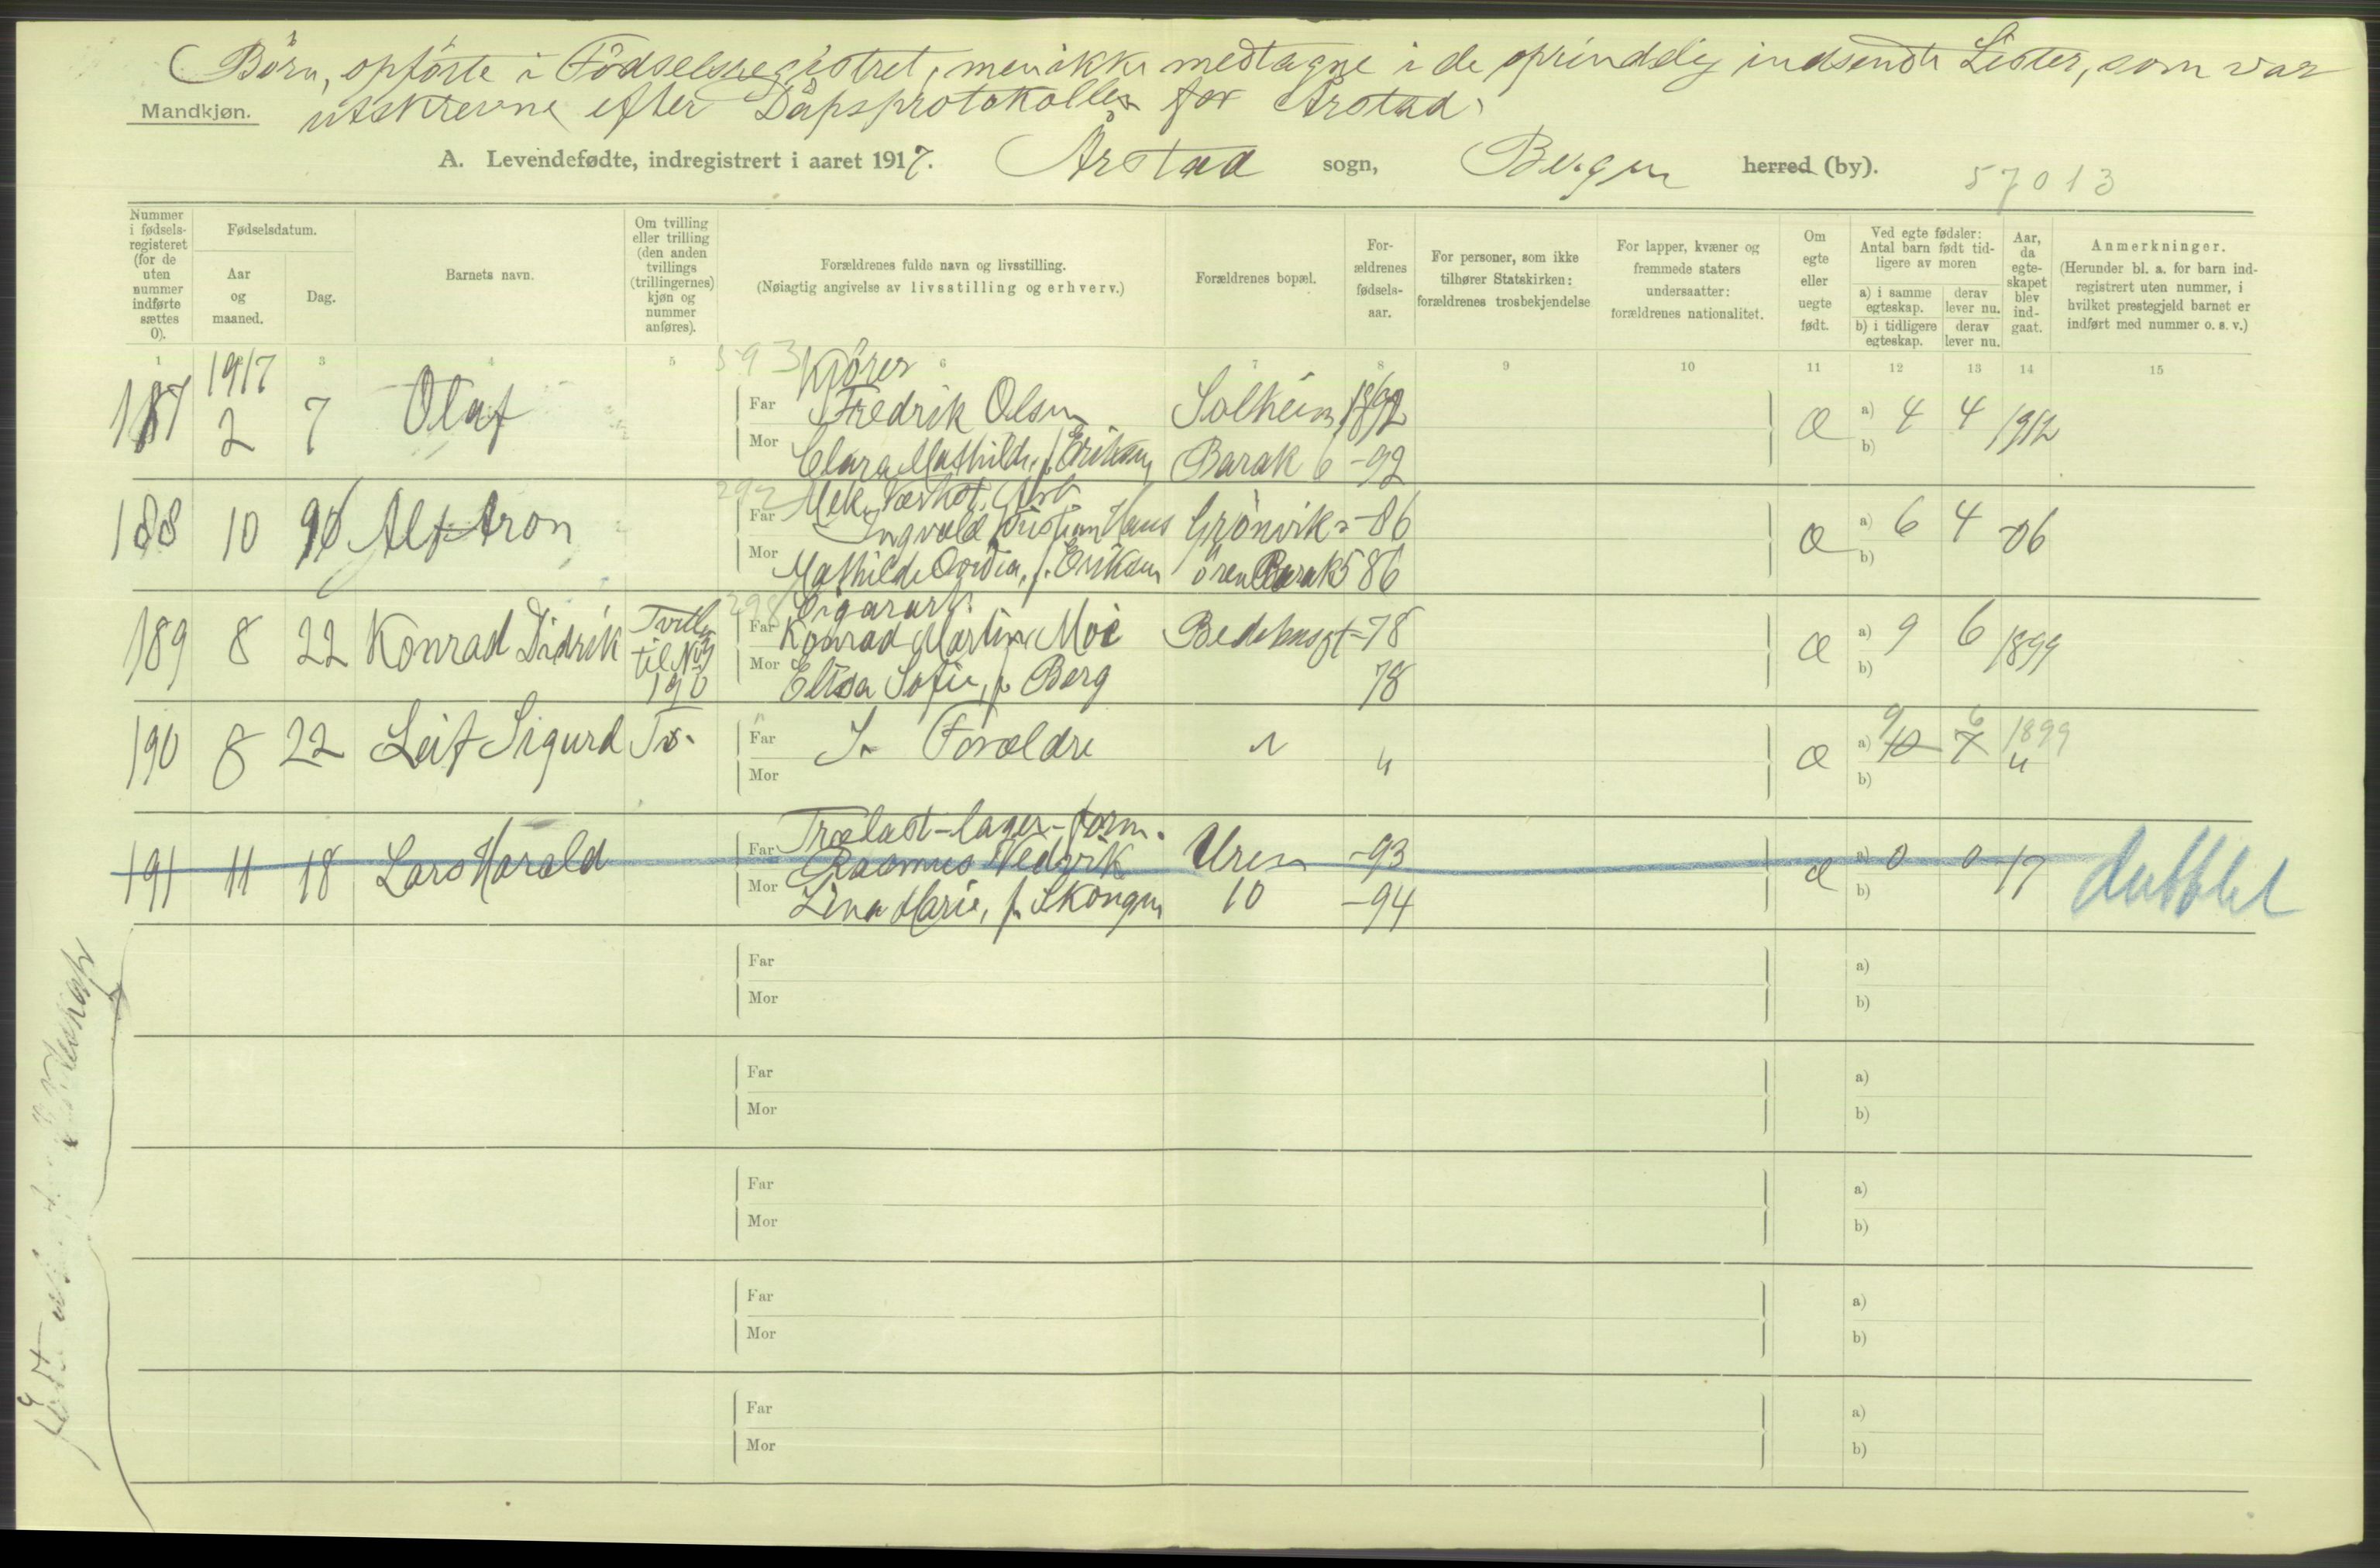 Börn, opförte i Födselsregistret, men ikke medtagne i de oprindelig indsendte Lister, som var
utskrevne efter Dåpsprotokollen for Årstad.
Mandkjøn.
A. Levendefødte, indregistrert i aaret 1917. Årstad sogn, Bergen herred (by). 57013
Nummer i fødselsregisteret (for de uten nummer indførte sættes 0).
Fødselsdatum.
Aar og maaned.
Dag.
Barnets navn.
Om tvilling eller trilling (den anden tvillings (trillingernes) kjøn og nummer anføres).
Forældrenes fulde navn og livsstilling.
(Nøiagtig angivelse av livsstilling og erhverv.)
Forældrenes bopæl.
Forældrenes fødselsaar.
For personer, som ikke tilhører Statskirken: forældrenes trosbekjendelse
For lapper, kvæner og fremmede staters undersaatter: forældrenes nationalitet.
Om egte eller uegte født.
Ved egte fødsler: Antal barn født tidligere av moren
a) i samme egteskap. derav lever nu.
b) i tidligere egteskap. derav lever nu.
Aar, da egteskapet blev indgaat.
Anmerkninger.
(Herunder bl. a. for barn indregistrert uten nummer, i hvilket prestegjeld barnet er indført med nummer o. s. v.)
1 3 4 5 6 7 8 9 10 11 12 13 14 15
1917
593 Kjörer
187 2 7 Olaf Far Fredrik Olsen Solheim 1892 Æ a) 4 4 1912
Mor Clara Mathilde, f. Eriksen Barak 6 -92 b)
292 Mek. Værkst. Arb.
188 10 Alf Aron Far Ingvald Kristian Haus Grönvik= -86 Æ a) 6 4 -06
Mor Mathilde Ovidia, f. Eriksen ören Barak 5 86 b)
298 Cigararb.
189 8 22 Konrad Didrik Tvill. til No 190 Far Konrad Martin Moe Bedehusgt -78 Æ a) 9 6 1899
Mor Elisa Sofie, f. Berg 78 b)
190 8 22 Leif Sigurd To. Far S. Forældre " " Æ a) 9 10 6 7 1899 "
Mor b)
Trælast-lager-form.
191 11 18 Lars Harald Far Rasmus Vedvik Uren -93 Æ a) 0 0 -17 dubblet
Mor Lina Marie, f. Skongen 10 -94 b)
Far a)
Mor b)
Far a)
Mor b)
Far a)
Mor b)
Far a)
Mor b)
Far a)
Mor b)